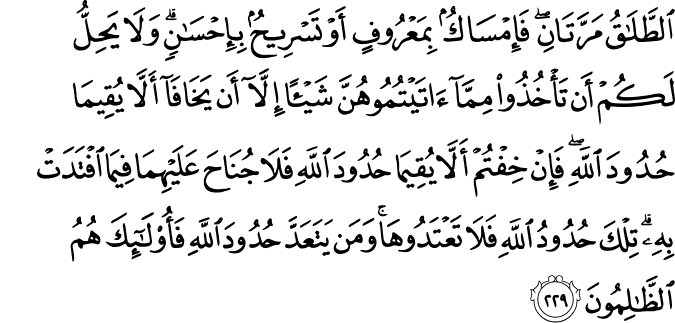 ٱلطَّلَٰقُ مَرَّتَانِۖ فَإِمۡسَاكُۢ بِمَعۡرُوفٍ أَوۡ تَسۡرِيحُۢ بِإِحۡسَٰنٖۗ وَلَا يَحِلُّ
لَكُمۡ أَن تَأۡخُذُواْ مِمَّآ ءَاتَيۡتُمُوهُنَّ شَيۡـًٔا إِلَّآ أَن يَخَافَآ أَلَّا يُقِيمَا
حُدُودَ ٱللَّهِۖ فَإِنۡ خِفۡتُمۡ أَلَّا يُقِيمَا حُدُودَ ٱللَّهِ فَلَا جُنَاحَ عَلَيۡهِمَا فِيمَا ٱفۡتَدَتۡ
بِهِۦۗ تِلۡكَ حُدُودُ ٱللَّهِ فَلَا تَعۡتَدُوهَاۚ وَمَن يَتَعَدَّ حُدُودَ ٱللَّهِ فَأُوْلَٰٓئِكَ هُمُ
ٱلظَّٰلِمُونَ ٢٢٩